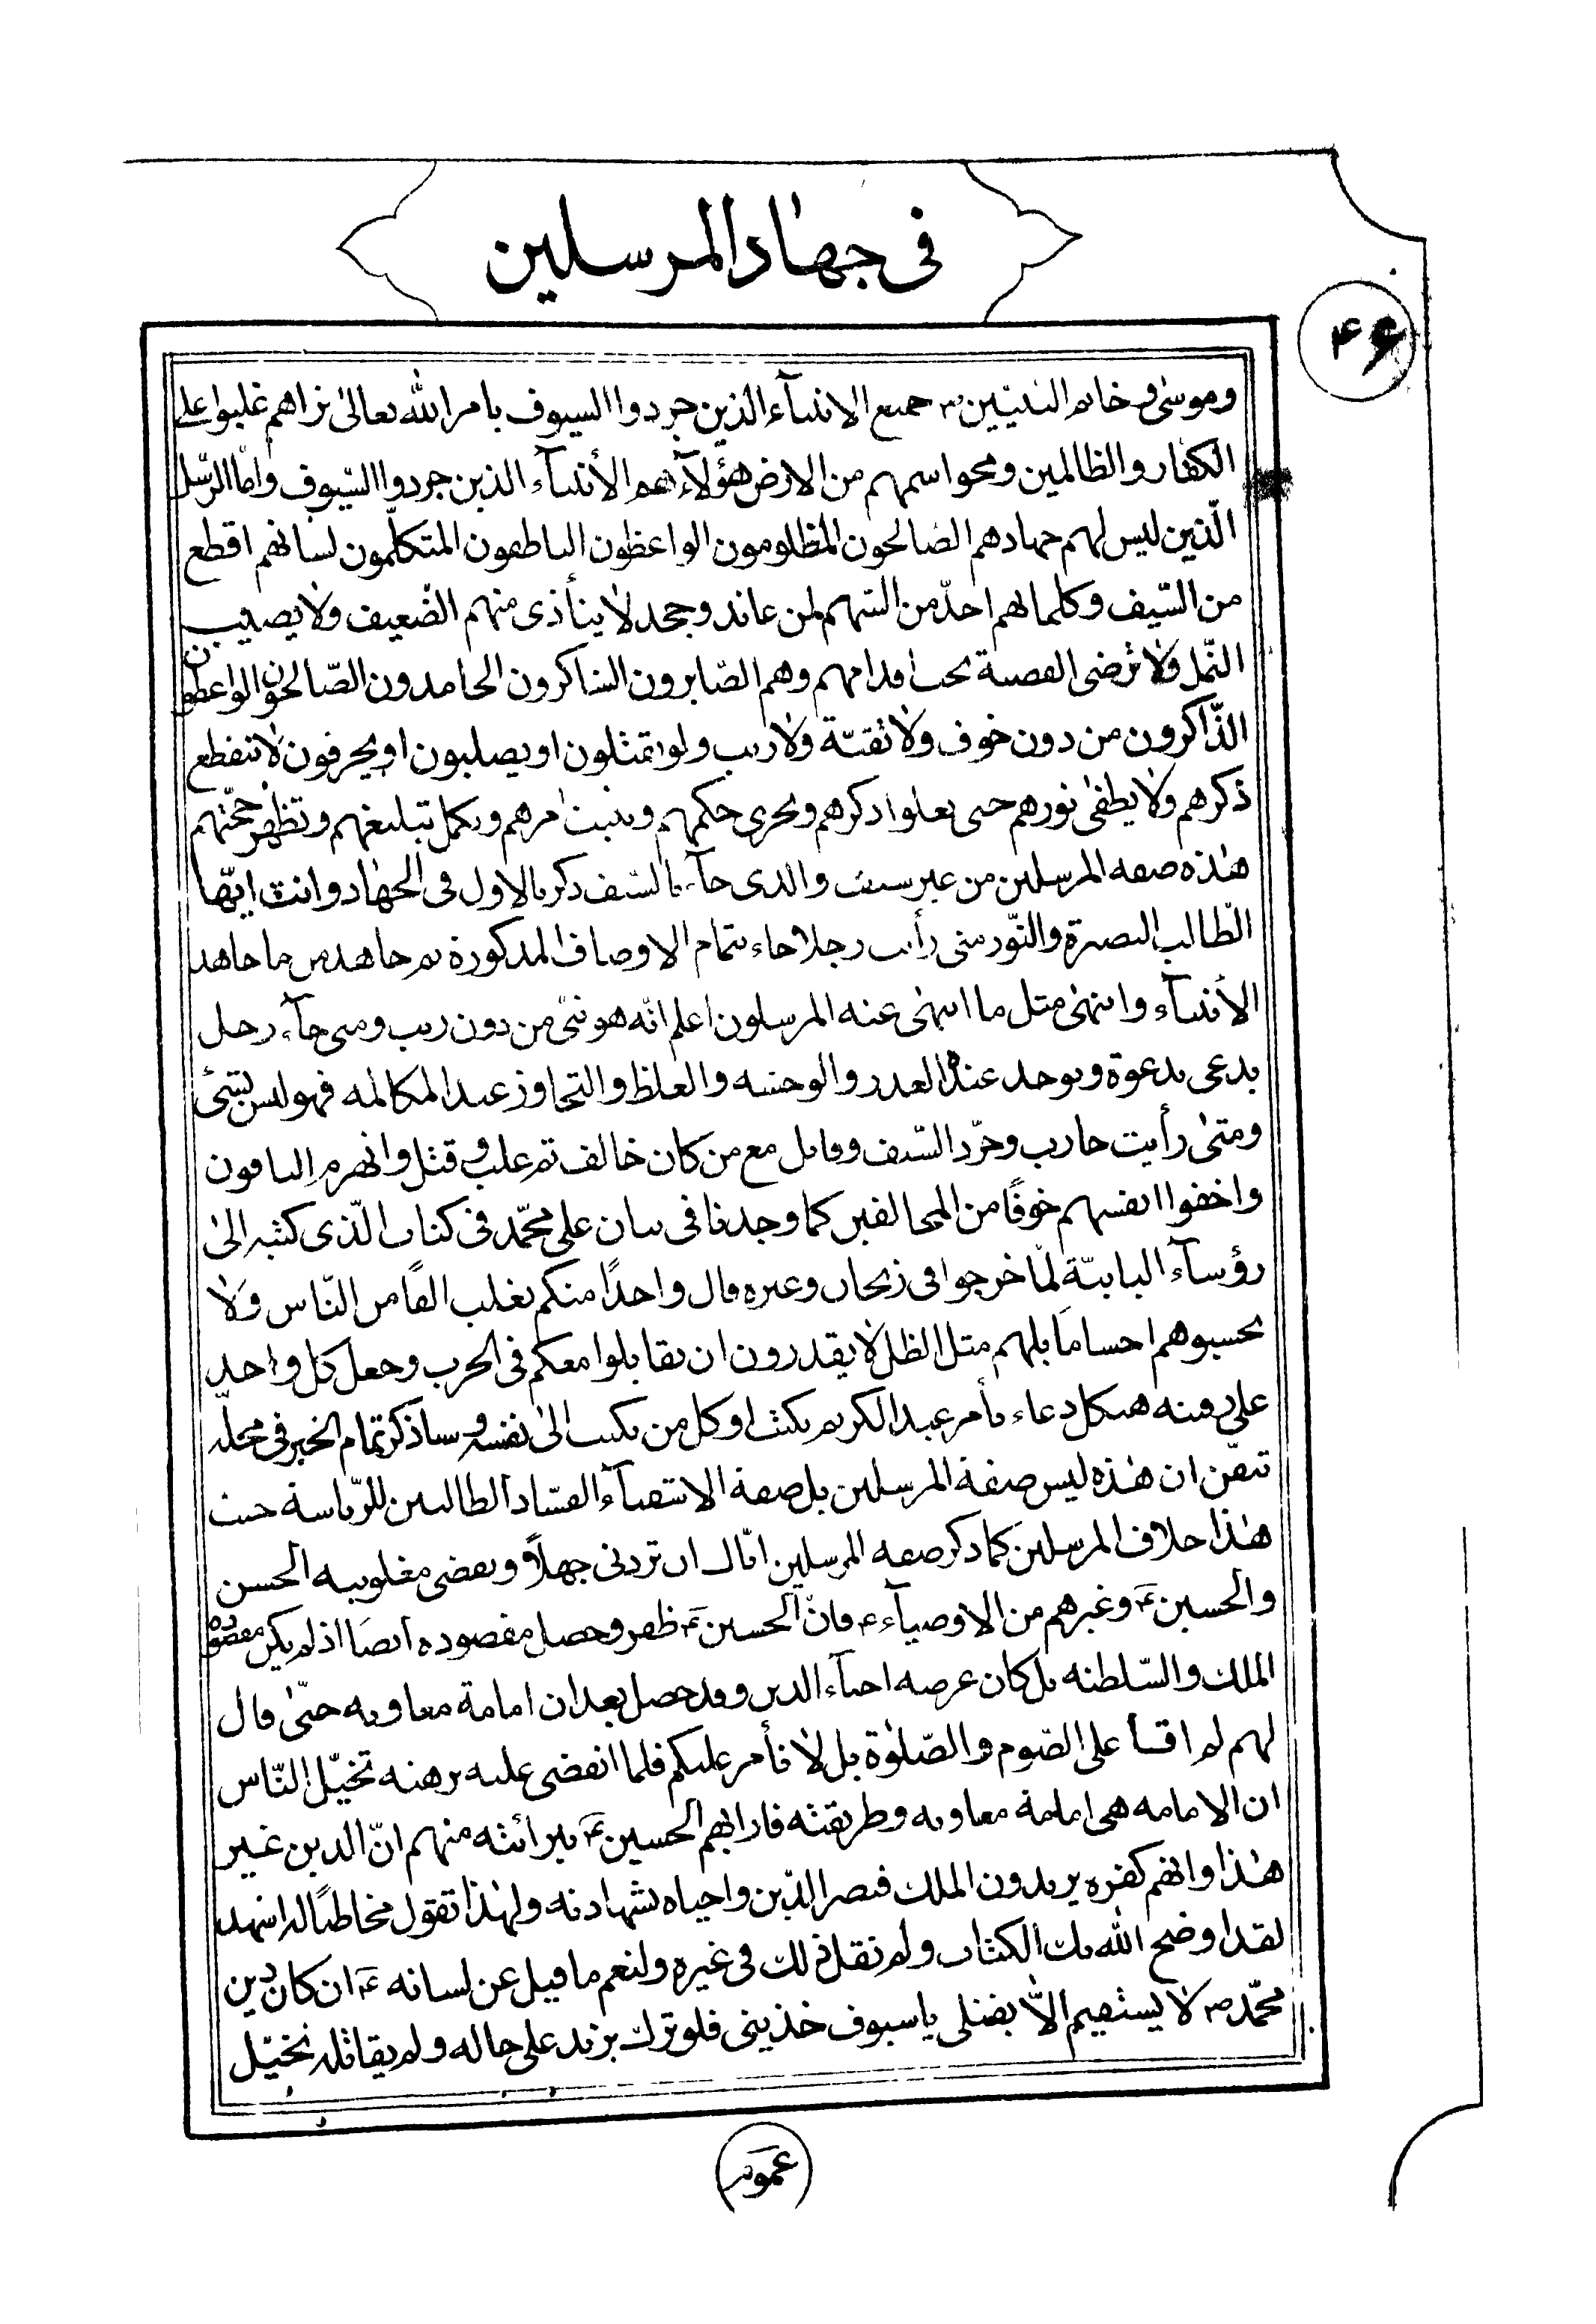 فى جهاد المرسلين
۴۶
وموسى وخاتم النبيين ص جميع الانبيآء الذين جردوا السيوف بامر الله تعالى نراهم غلبوا على
الكفار والظالمين ومحوا سمهم من الارض هؤلآء هم الأنبيآء الذين جردوا السّيوف وامّا الرّسل
الّذين ليس لهم جهاد هم الصّالحون المظلومون الواعظون الناطقون المتكلّمون لسانهم اقطع
من السّيف وكلمالهم احدّ من السّهم لمن عاند وجحد لا يتأذى منهم الضّعيف ولا يصيب
النّمل ولا ترضى القصبة تحت اقدامهم وهم الصّابرون الشاكرون الحامدون الصّالحون الواعظون
الذّاكرون من دون خوف ولا تقيّة ولا ريب ولو تمثلون او يصلبون او يحرقون لا ينقطع
ذكرهم ولا يطفى نورهم حتى يعلوا ذكرهم ويجرى حكمهم ويثبت امرهم ويكمل تبليغهم وتظهر حجّتهم
هذه صفه المرسلين من غير سيف والذى جآء بالسّيف ذكر بالاول فى الجهاد وانت ايّها
الطّالب البصرة والنّور متى رأيت رجلا جاء بتمام الاوصاف المذكورة ثم جاهد من ما جاهد
الأنبيآء وانتهى مثل ما انتهى عنه المرسلون اعلم انّه هو نبىّ من دون ريب ومتى جآء رجل
يدعى بدعوة ويوجد عنده الغدر والوحشه والغلظ والتجاوز عند المكالمه فهو ليس بشئ
ومتى رأيت حارب وجرّد السّيف وقاتل مع من كان خالف ثم غلب وقتل وانهزم الباقون
واخفوا انفسهم خوفًا من المخالفين كما وجدنا فى بيان على محمّد فى كتاب الّذى كتبه الى
رؤسآء البابيّة لمّا خرجوا فى زنجان وغيره قال واحدًا منكم يغلب الفًا من النّاس ولا
تحسبوهم اجسامًا بل هم مثل الظل لا يقدرون ان يقابلوا معكم فى الحرب وجعل كل واحد
على رقبته هيكل دعاء بأمر عبد الكريم يكتب او كل من يكتب الى نفسه وساذكر تمام الخبر فى محلّه
تيقّن ان هذه ليس صفة المرسلين بل صفة الاشقيآء الفسّاد الطالبين للرّياسة حيث
هذا خلاف المرسلين كما ذكر صفه المرسلين امّا لك ان تردنى جهلًا وبعضى مغلوبيه الحسن
والحسين ع وغيرهم من الاوصيآء ع فانّ الحسين ع ظفر وحصل مقصوده ايضًا اذ لم يكن مقصوده
الملك والسّلطنه بل كان غرضه احيآء الدين وقد حصل بعد ان امامة معاويه حتّى قال
لهم لم اقسأ على الصّوم والصّلوة بل لا نأمر عليكم فلما انقضى عليه برهنه تخيّل النّاس
ان الامامه هى امامة معاويه وطريقته فارابهم الحسين ع ببرائته منهم انّ الدين غير
هذا وانهم كفره يريدون الملك فنصر الدّين واحياه بشهادته ولهذا تقول مخاطبًا له اشهد
لقد اوضح الله بك الكتاب ولم نقل ذلك فى غيره ولنعم ما قيل عن لسانه ع ان كان دين
محمّد ص لا يستقيم الّا بقتلى يا سيوف خذينى فلو ترك يزيد على حاله ولم يقاتله تخيّل